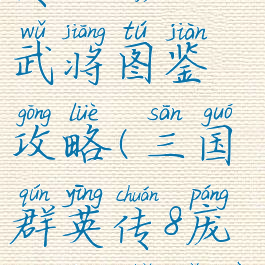 wǔ jiāng tú jiàn
武将图鉴
gōng lüè sān guó
攻略(三国
qún yīng chuán páng
群英传8庞